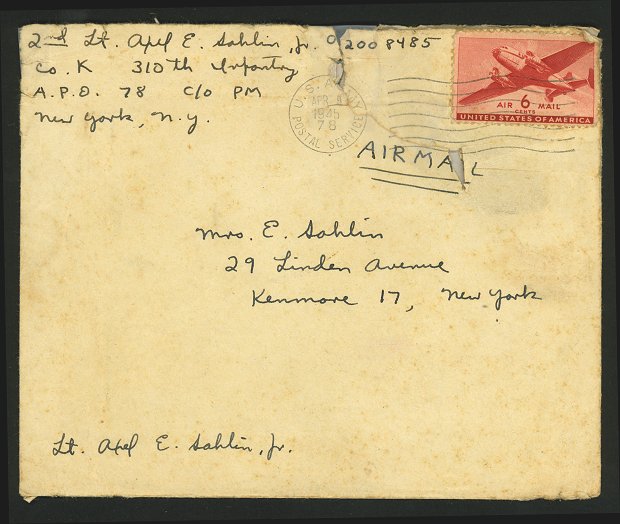 2nd Lt. Axel E. Sahlin, Jr. O2008485
Co. K 310th Infantry
A.P.O. 78 c/o PM
New York, N.Y.
U.S. ARMY
APR
1945
78
POSTAL SERVICE
AIR 6 MAIL
CENTS
UNITED STATES OF AMERICA
AIRMAIL
Mrs. E. Sahlin
29 Linden Avenue
Kenmore 17, New York
Lt. Axel E. Sahlin, Jr.